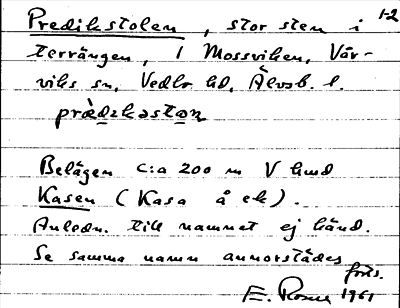 1-2
Predikstolen, stor sten i
terrängen, i Mossviken, Vår-
viks sn, Vedbo hd, Älvsb. l.
prèdɩkəstan
Belägen c:a 200 m V hmd
Kasen (Kasa å ek).
Anledn. till namnet ej känd.
Se samma namn annorstädes
forts.
E. 1961